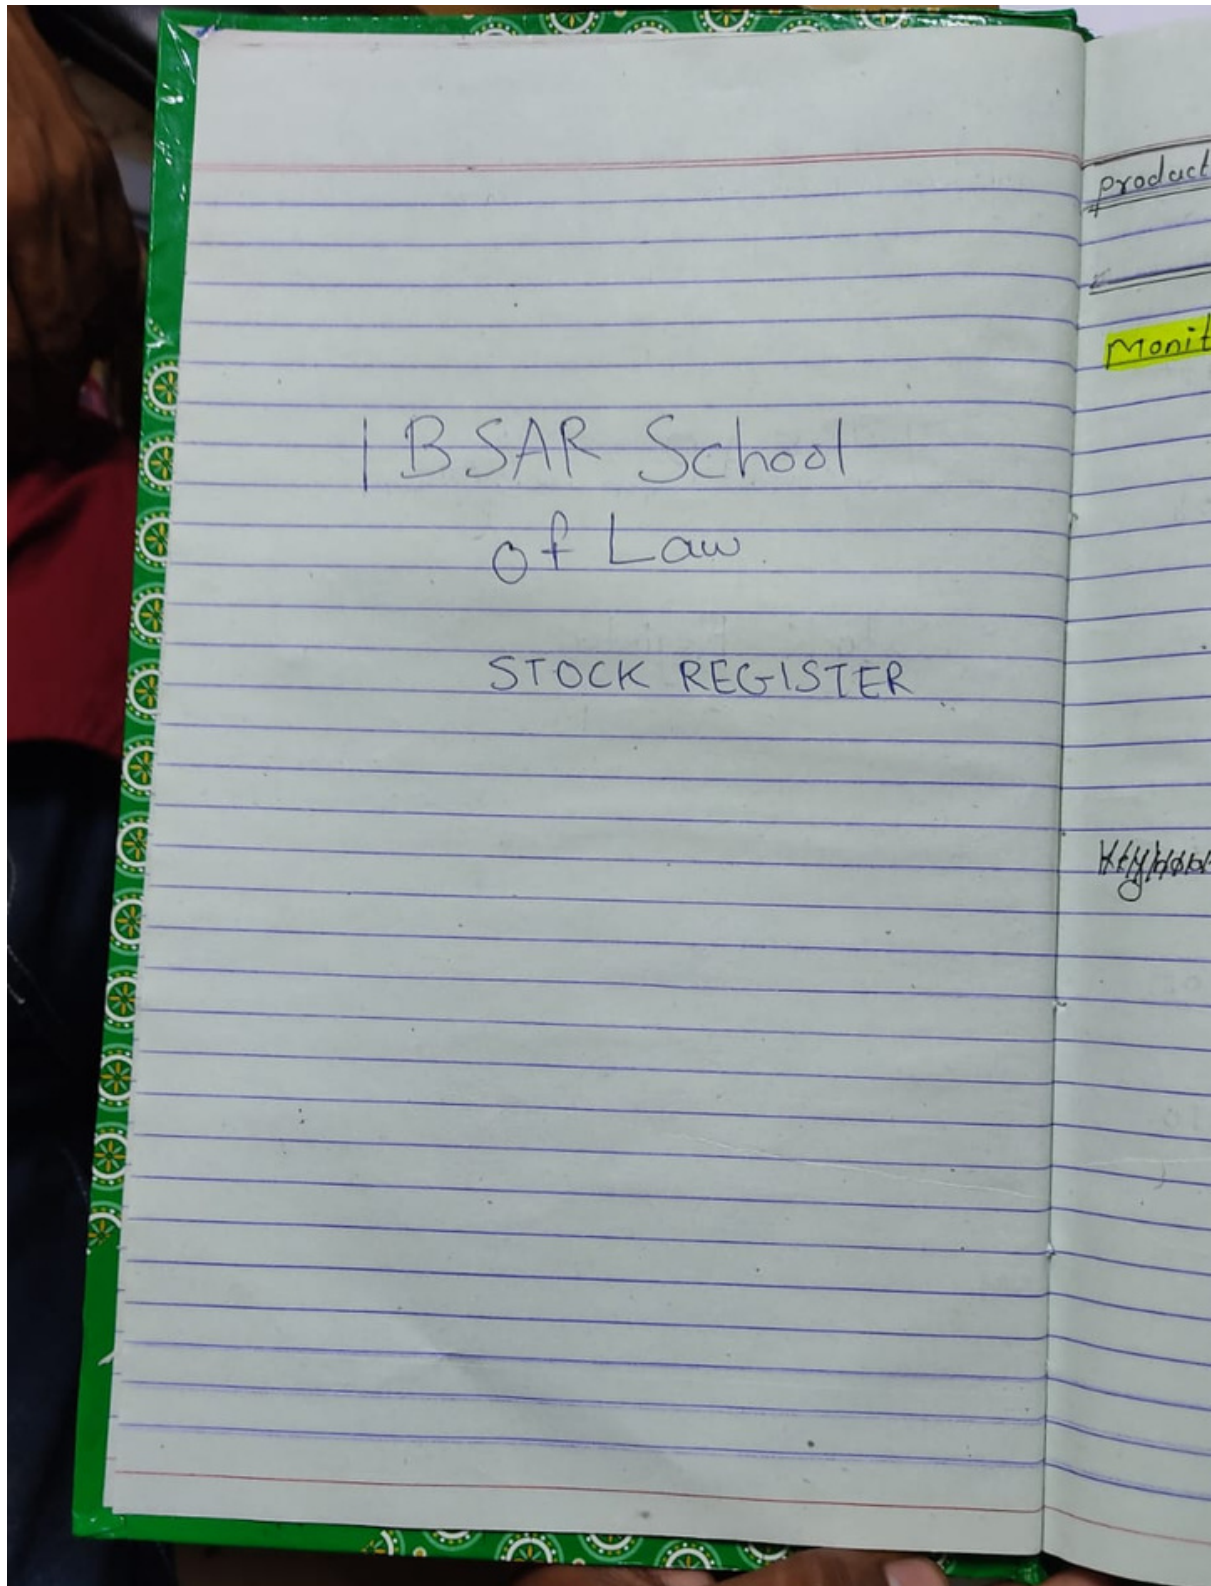 IBSAR School
of Law
STOCK REGISTER
Product
Monit